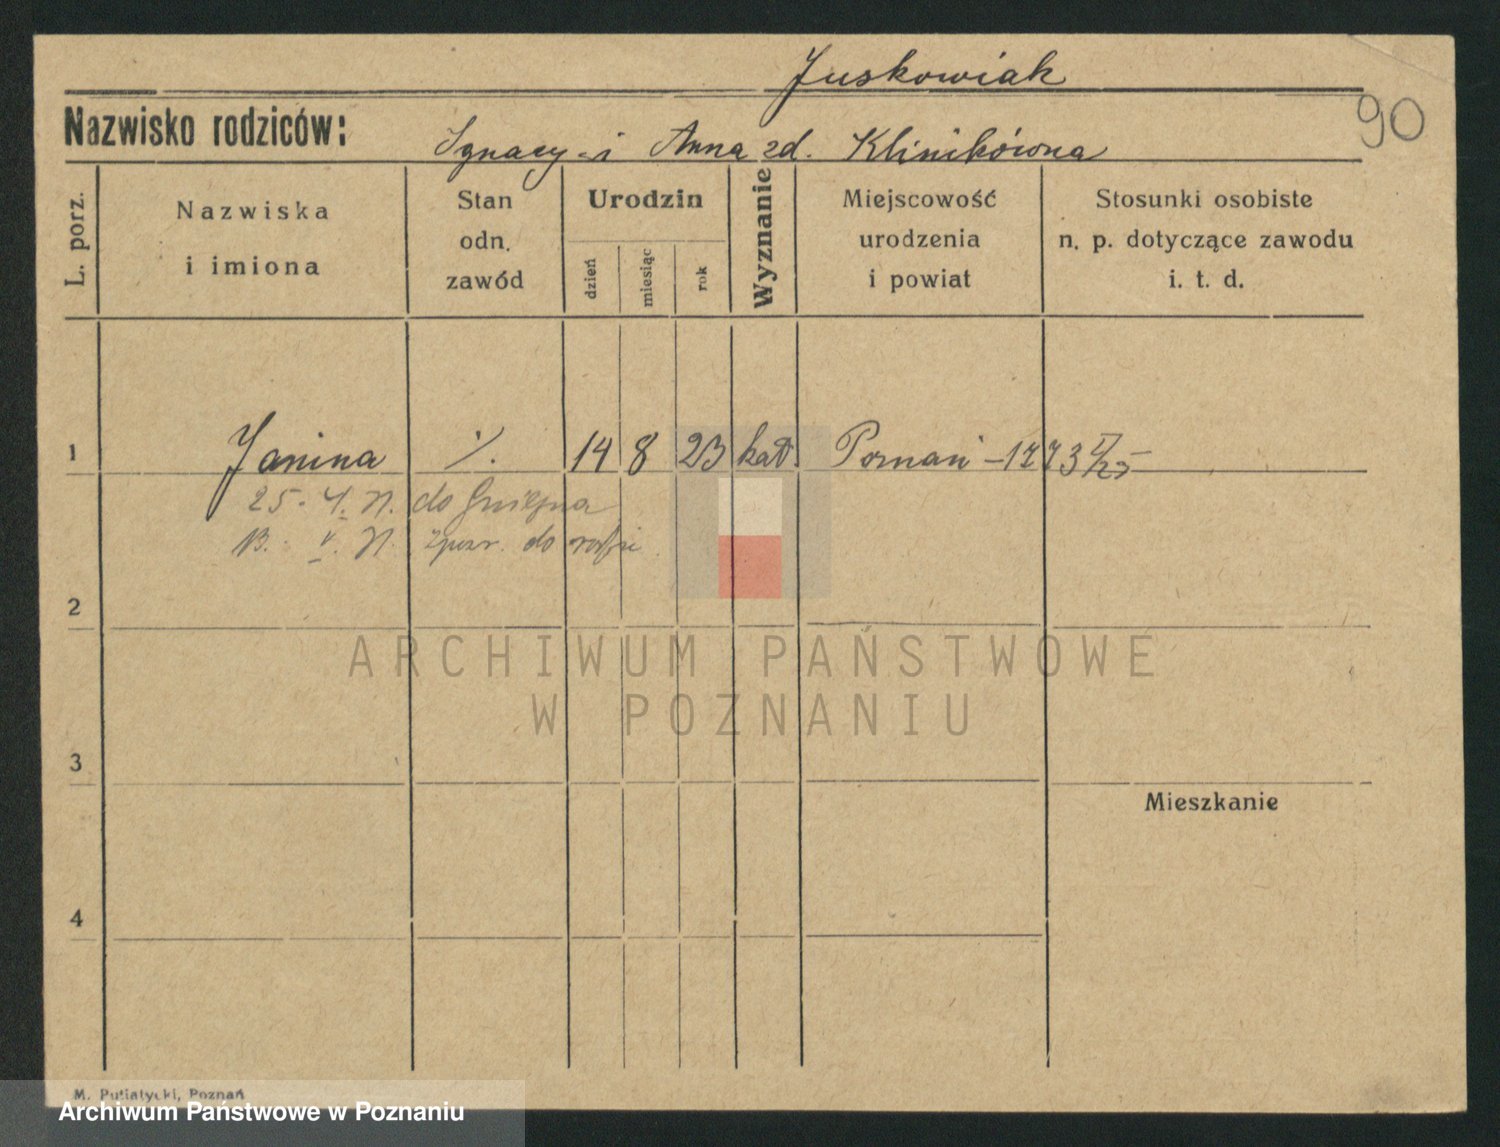 Juskowiak
90
Nazwisko rodziców:
Ignacy i Anna zd. Klinikówna
L. porz.
Nazwiska
i imiona
Stan
odn.
zawód
Urodzin
dzień
miesiąc
rok
Wyznanie
Miejscowość
urodzenia
i powiat
Stosunki osobiste
n. p. dotyczące zawodu
i. t. d.
1 Janina ·/. 14 8 23 kat. Poznań
25. do Gniezna
do
2
ARCHIWUM PAŃSTWOWE
W POZNANIU
3
Mieszkanie
4
M. Putiatycki, Poznań
Archiwum Państwowe w Poznaniu